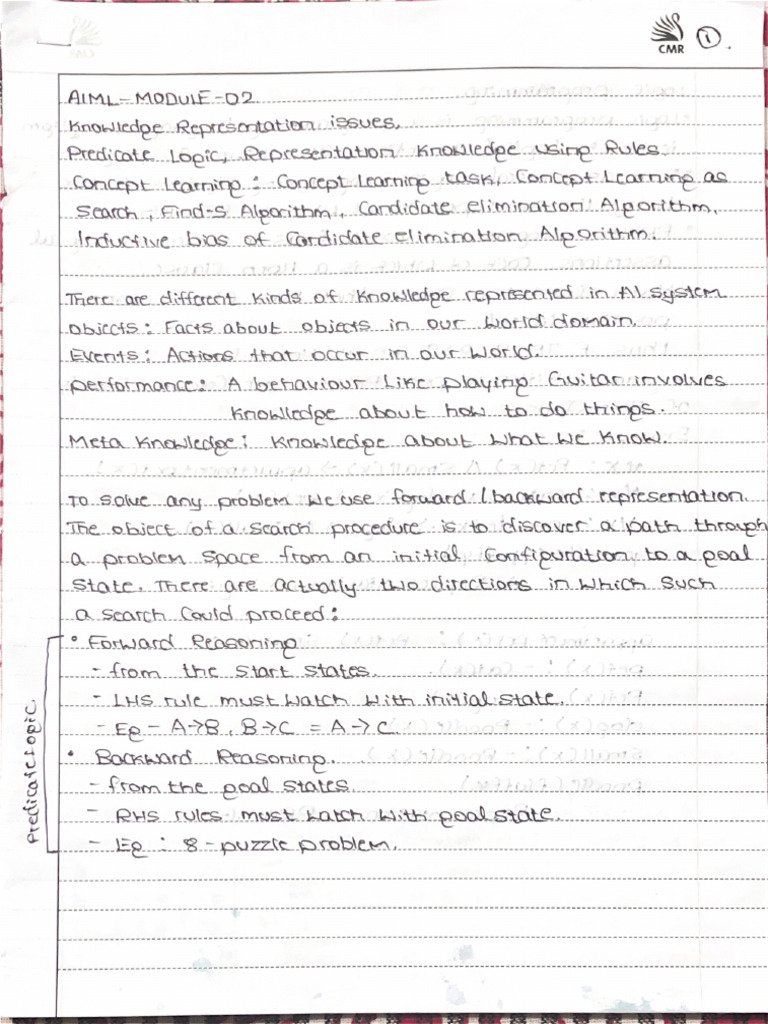 CMR
1
AIML-MODULE-02
Knowledge Representation issues,
Predicate Logic, Representation Knowledge using Rules.
Concept Learning: Concept Learning task, Concept Learning as
Search, Find-S Algorithm, Candidate elimination Algorithm,
Inductive bias of Candidate Elimination Algorithm.
There are different kinds of Knowledge represented in AI system
objects: Facts about objects in our World domain.
Events: Actions that occur in our World.
performance: A behaviour Like playing Guitar involves
Knowledge about how to do things.
Meta Knowledge: Knowledge about What We Know.
To solve any problem We use forward /backward representation.
The object of a search procedure is to discover a path through
a problem space from an initial Configuration to a goal
State. There are actually two directions in Which Such
a search Could proceed:
Predicate Logic.
• Forward Reasoning:
- from the Start States.
- LHS rule must Match With initial state.
- Eg - A→B, B→C = A→C
• Backward Reasoning.
- from the goal States.
- RHS rules must Match With goal state.
- Eg : 8-puzzle problem.